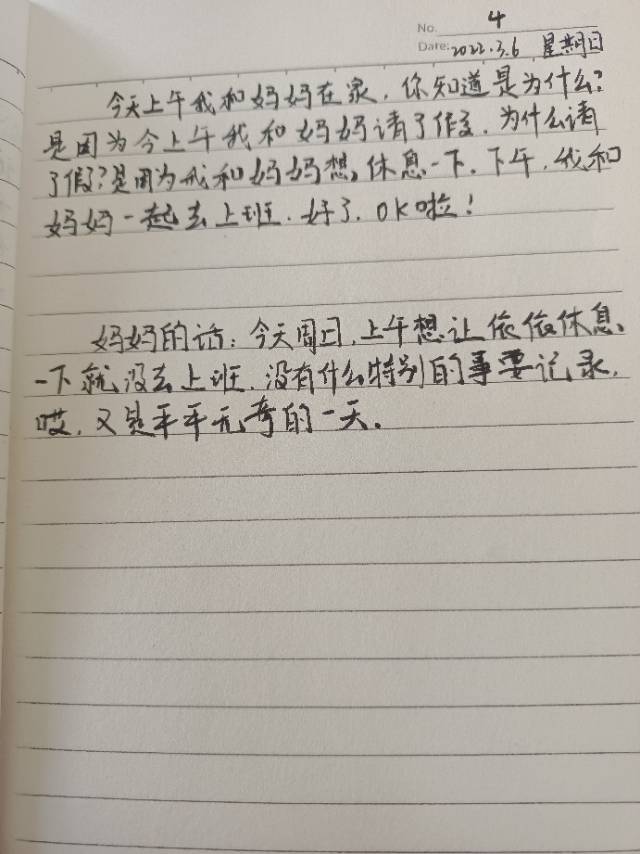 No. 4
Date: 2022.3.6 星期日
今天上午我和妈妈在家，你知道是为什么？
是因为今上午我和妈妈请了假，为什么请
了假？是因为我和妈妈想，休息一下。下午，我和
妈妈一起去上班，好了，OK啦！
妈妈的话：今天周日，上午想让依依休息
一下就没去上班，没有什么特别的事要记录，
哎，又是平平无奇的一天。